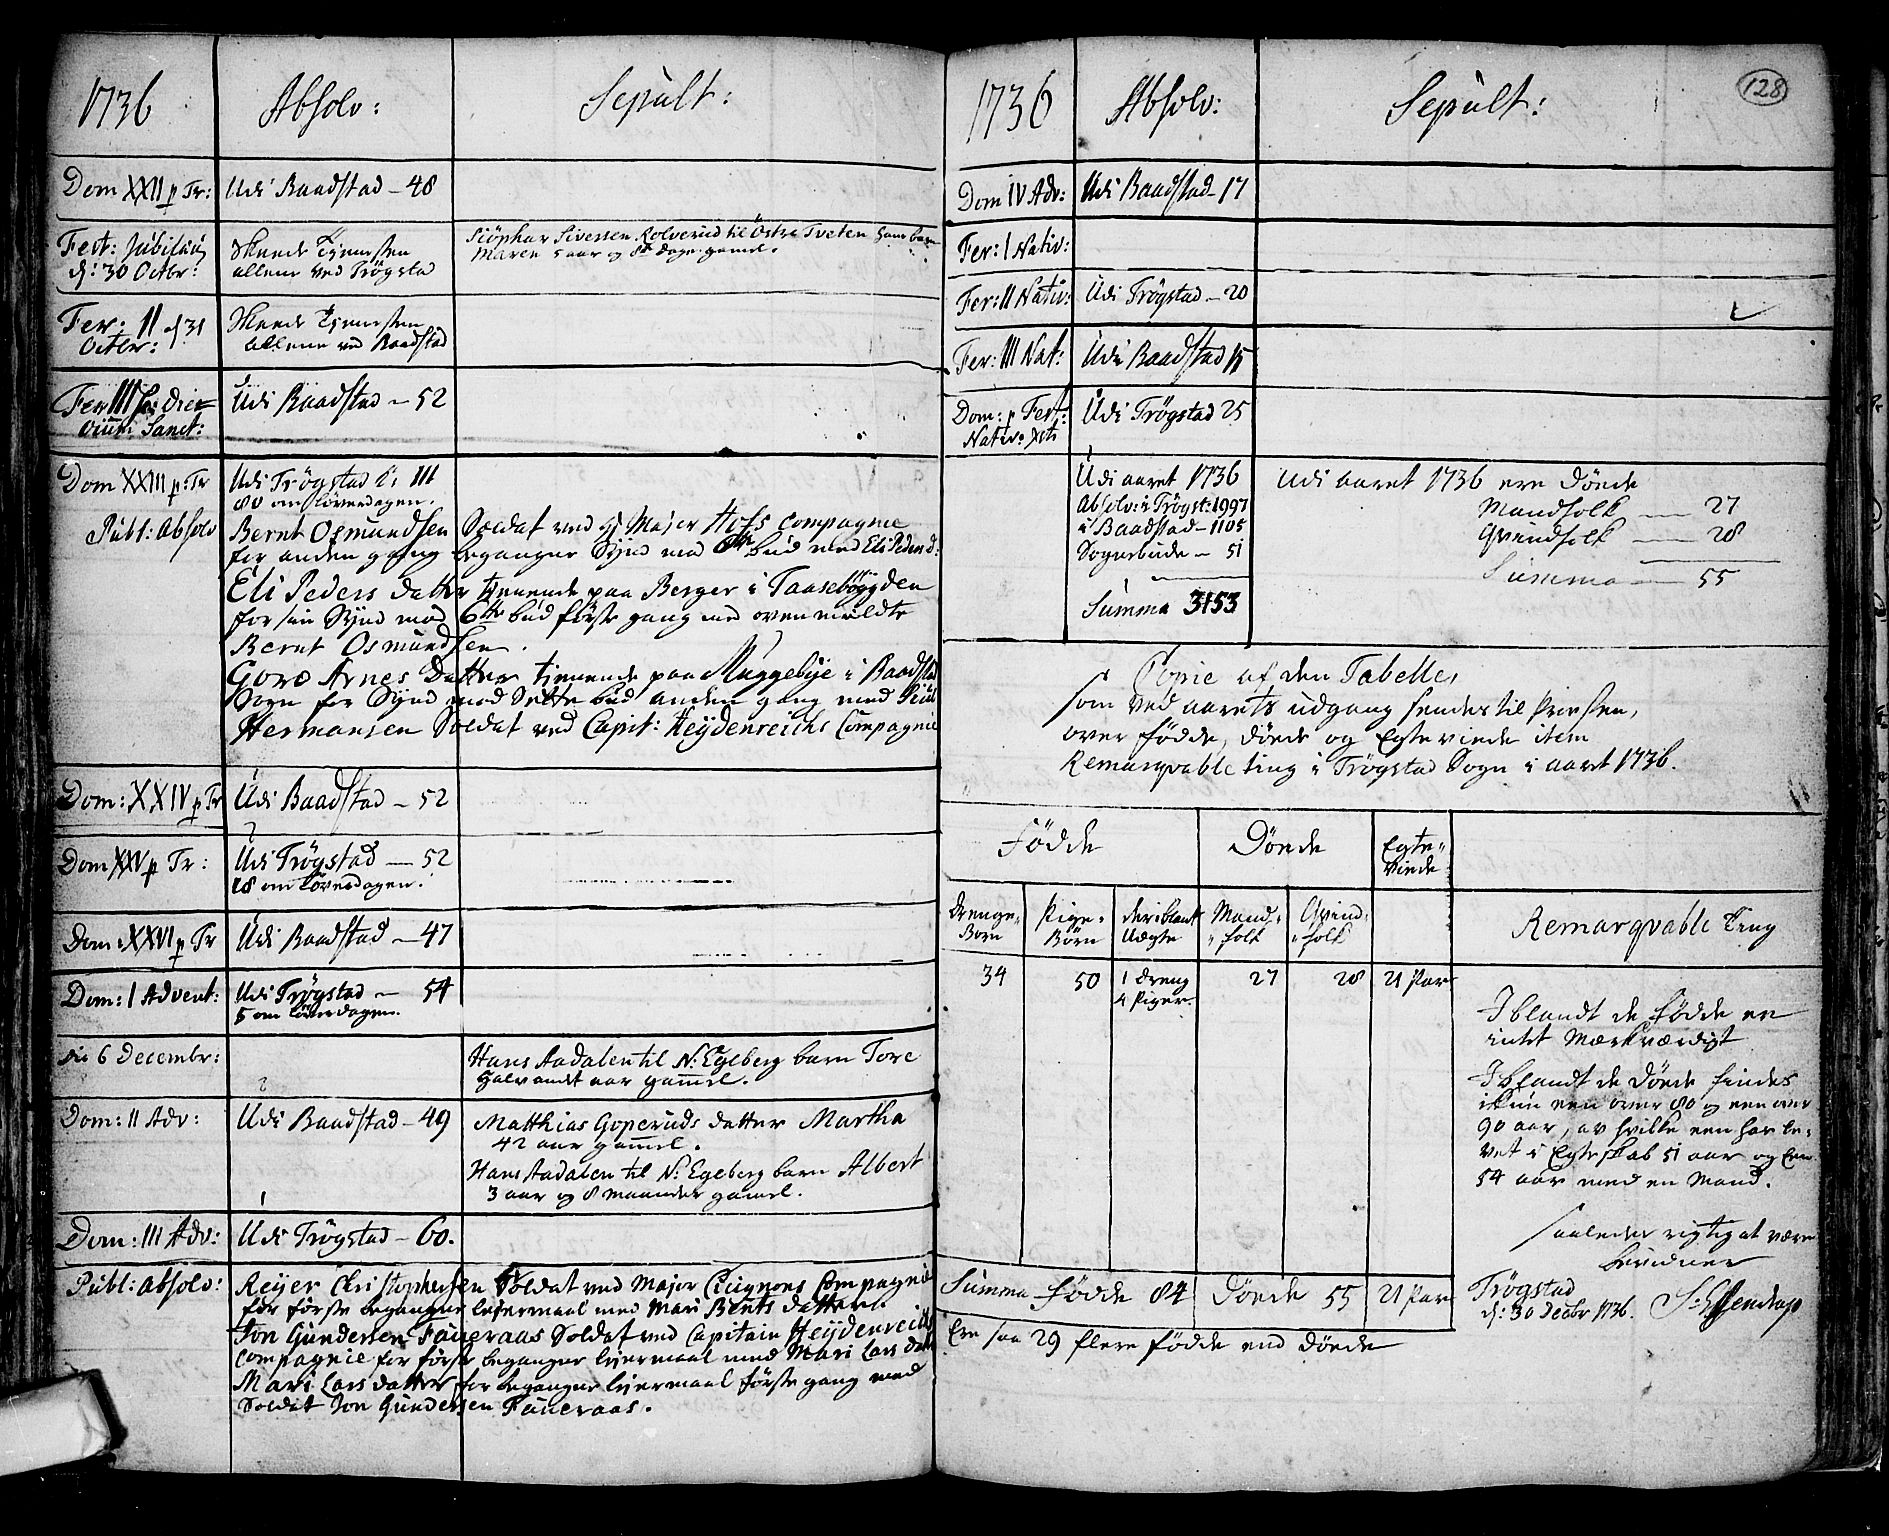 1736 Absolv: Sepult:
Dom XXII p Tr: Udi Baadstad - 48
Fest: Jubilæi Skeede Tienesten Siöphar Sivessen Rolverud til Östre Tveten hans barn
d: 30 Octbr: allene ved Trögstad Maren 5 aar og 8 dage gamel.
Fer: II d 31 Skeede Tienesten
Octbr: allene ved Baadstad
Fer III Udi Baadstad - 52
Sanct:
Dom XXIII p: Tr Udi Trögstad 111
80 om löverdagen.
Publ: Absolv Bernt Osmundsen Soldat ved Major Hofs Compagnie
for anden gang begangen Synd mod 6te bud med Eli Peders d:
Eli Peders datter tienende paa Berger i Taasebøygden
for sin Synd mod 6te bud første gang med ovenmeldte
Bernt Osmundsen.
Goro Arnes Datter tienende paa Muggebye i Baadstad
Sogn for Synd mod Sette bud anden gang med
Hermansen Soldat ved Capit: Heydenreichs Compagnie
Dom: XXIV p Tr Udi Baadstad - 52
Dom XXV p Tr: Udi Trögstad - 52
18 om löverdagen.
Dom: XXVI p Tr Udi Baadstad - 47
Dom: I Advent: Udi Trögstad - 54
5 om löverdagen.
6 Decembr: Hans Aadalen til N: Egeberg barn Tore
halvandet aar gammel.
Dom: II Adv: Udi Baadstad - 49 Matthias Goperuds datter Martha
42 aar gammel.
Hans Aadalen til N: Egeberg barn Albert
3 aar og 8 maaneder gamel.
Dom: III Adv: Udi Trögstad - 60.
Publ: Absolv: Reyer Christophersen Soldat ved Major Cicignons Compagnie
for første begangne leyermaal med Mari Bents datter.
Jon Gundersen Faueraas Soldat ved Capitain Heydenreichs
Compagnie for første begangen leyermaal med Mari Lars datt
Mari Lars datter for begangen leyermaal første gang med
Soldat Jon Gundersen Faueraas.
1736 Absolv: Sepult: 128
Dom IV Adv: Udi Baadstad - 17
Fer: I Nativ:
Fer: II Nativ: Udi Trögstad - 20
Fer: III Nat: Udi Baadstad 15
Dom: p Fest: Udi Trögstad 25
Nativ: Xsti
Udi aaret 1736 Udi aaret 1736 ere Døede
Absolv: i Trögst: 1997 Mandfolk - 27
i Baadstad - 1105 Qvindfolk - 28
Sognebude - 51 Summa - 55
Summa 3153
Copie af den Tabelle,
som ved aarets udgang sendes til Provsten,
over fødde, døede og Egteviede item
Remarqvable ting i Trögstad Sogn i aaret 1736.
Fødde Døede Egte-
viede
Drenge- Pige- deriblant Mand- Qvind- Remarqvable Ting
Børn Børn Uægte folk folk
34 50 1 dreng 27 28 21 Par
4 Piger.
Iblandt de fødde er
intet Mærkværdigt
Iblandt de Døede findes
ikun een over 80 og een over
90 aar, av hvilke een har le-
vet i Egteskab 51 aar og Een
54 aar med en Mand.
saaledes rigtig at være
bevidner
Summa Fødde 84 Døede 55 21 Par Trögstad
d: 30 Decbr 1736.
Ere saa 29 flere fødde end døede